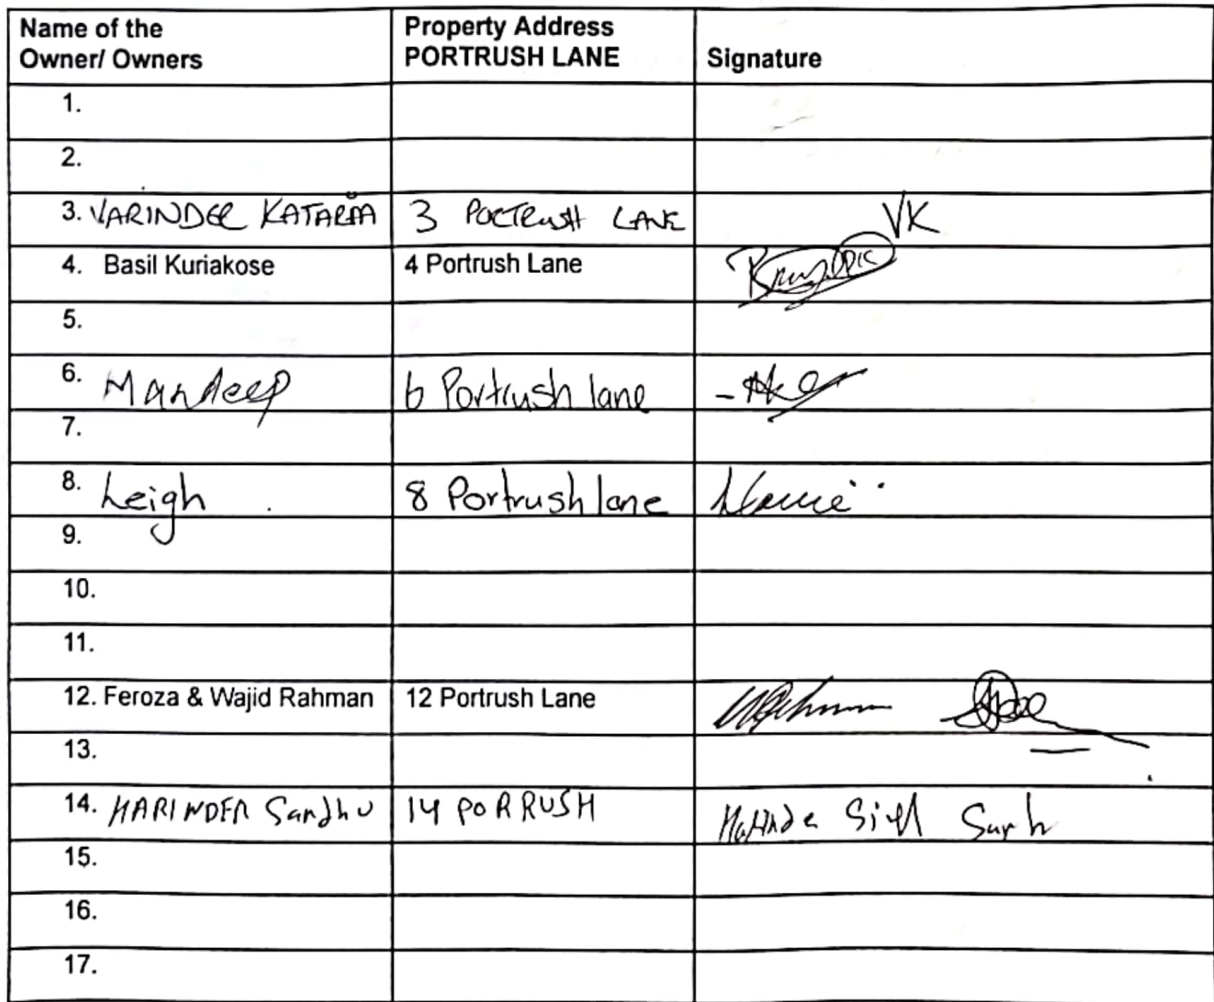 Name of the Owner/ Owners
Property Address PORTRUSH LANE
Signature
1.
2.
3. VARINDER KATARIA 3 PORTRUSH LANE VK
4. Basil Kuriakose 4 Portrush Lane
5.
6. Mandeep 6 Portrush lane
7.
8. Leigh 8 Portrush lane
9.
10.
11.
12. Feroza & Wajid Rahman 12 Portrush Lane
13.
14. HARINDER Sandhu 14 PORRUSH
15.
16.
17.